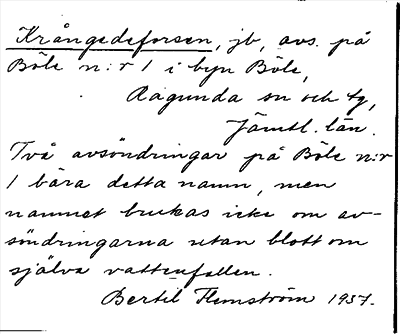 Krångedeforsen, jb, avs. på
Böle n:r 1 i byn Böle,
Ragunda sn och tg,
Jämtl. län.
Två avsöndringar på Böle n:r
1 bära detta namn, men
namnet brukas icke om av-
söndringarna utan blott om
själva vattenfallen.
Bertil Flemström 1937.